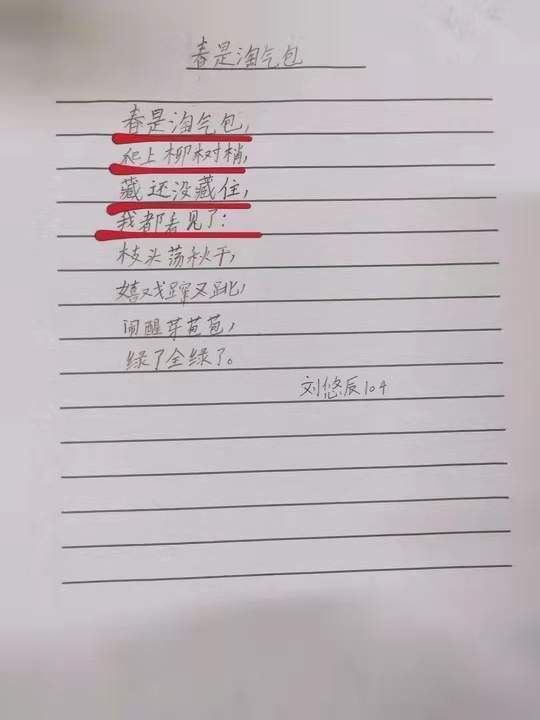 春是淘气包
春是淘气包,
爬上柳树梢,
藏还没藏住,
我都看见了:
枝头荡秋千,
嬉戏蹿又跳,
闹醒芽苞苞,
绿了全绿了。
刘悠辰104